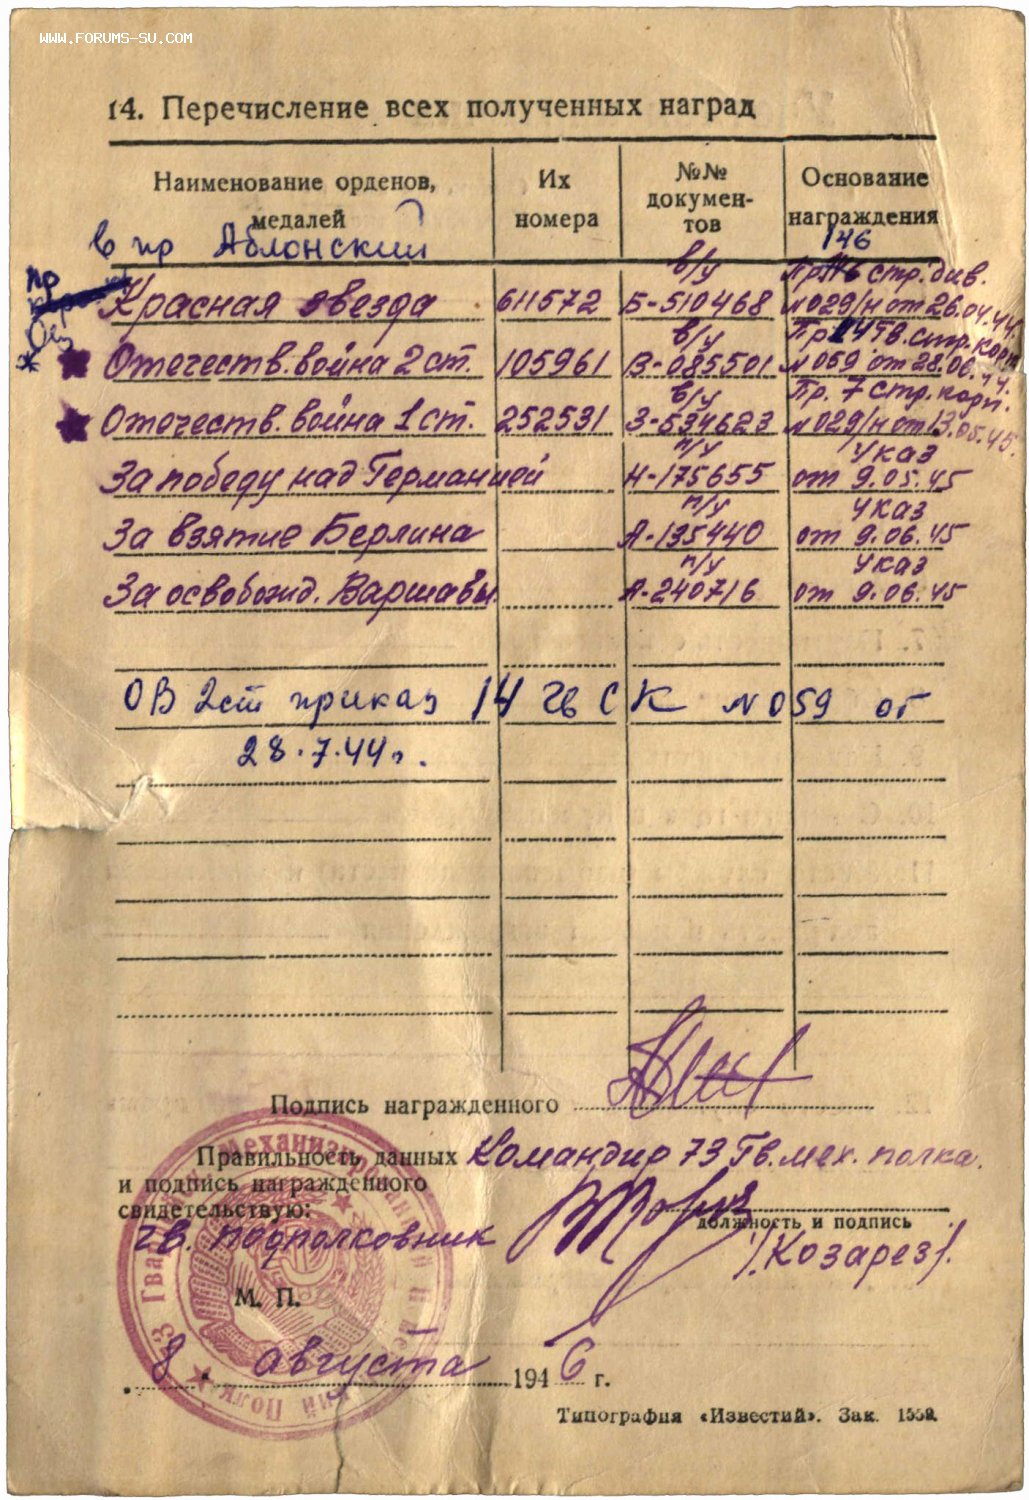 WWW.FORUMS-SU.COM
14. Перечисление всех полученных наград
Наименование орденов, медалей
Их номера
№№ документов
Основание награждения
в пр Аблонский
146
пр
Красная звезда 611572 в/у Б-510468 Пр. стр. див. №029/н от 26.04.44.
Отечеств. война 2 ст. 105961 в/у В-085501 Пр. 14 Гв. стр. корп №059 от 28.06.44.
Отечеств. война 1 ст. 252531 в/у З-534623 Пр. 7 стр. корп. №029/н от 13.05.45.
За победу над Германией п/у Н-175655 Указ от 9.05.45
За взятие Берлина п/у А-135440 Указ от 9.06.45
За освобожд. Варшавы п/у А-240716 Указ от 9.06.45
ОВ 2 ст приказ 14 гв С К №059 от
28.7.44г.
Подпись награжденного
Правильность данных Командир 73 Гв. мех. полка.
и подпись награжденного
свидетельствую:
должность и подпись
гв. подполковник /Козарез/.
М. П.
8 августа 1946 г.
Типография «Известий». Зак. 1559.